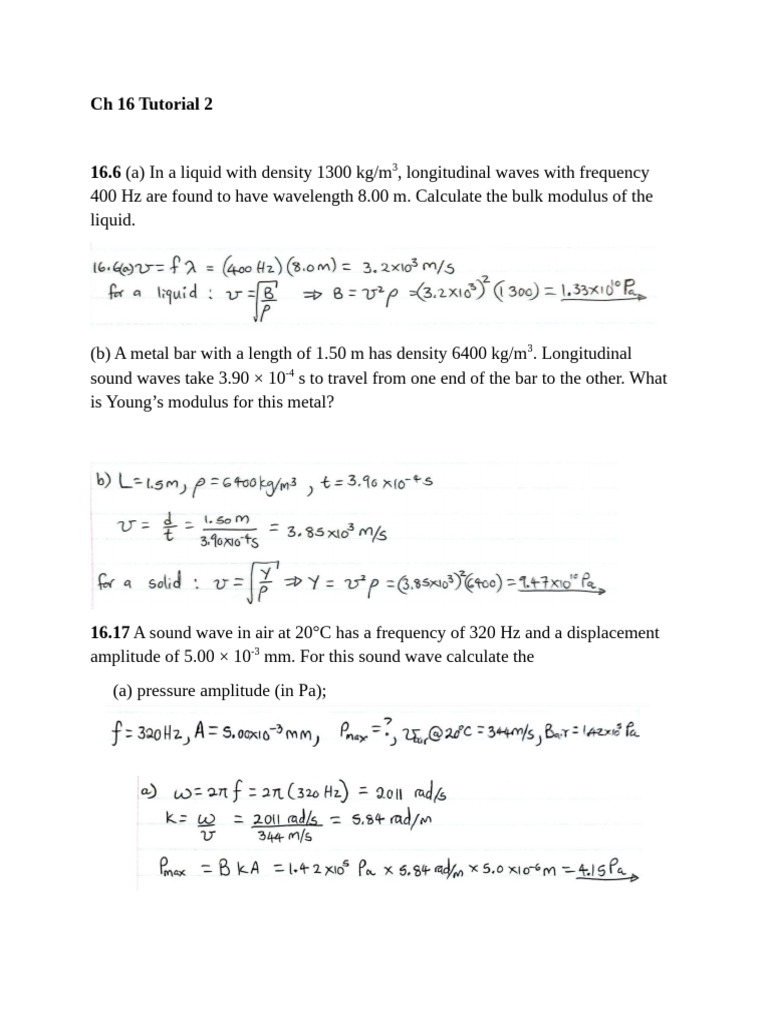 Ch 16 Tutorial 2
16.6 (a) In a liquid with density 1300 kg/m³, longitudinal waves with frequency
400 Hz are found to have wavelength 8.00 m. Calculate the bulk modulus of the
liquid.
16.6(a) v = f λ = (400 Hz)(8.0m) = 3.2×10³ m/s
for a liquid : v = √(B/ρ) ⇒ B = v²ρ = (3.2×10³)²(1300) = 1.33×10¹⁰ Pa
(b) A metal bar with a length of 1.50 m has density 6400 kg/m³. Longitudinal
sound waves take 3.90 × 10⁻⁴ s to travel from one end of the bar to the other. What
is Young’s modulus for this metal?
b) L = 1.5m, ρ = 6400 kg/m³, t = 3.90 ×10⁻⁴s
v = d/t = 1.50 m / 3.90×10⁻⁴s = 3.85×10³ m/s
for a solid : v = √(Y/ρ) ⇒ Y = v²ρ = (3.85×10³)²(6400) = 9.47×10¹⁰ Pa
16.17 A sound wave in air at 20°C has a frequency of 320 Hz and a displacement
amplitude of 5.00 × 10⁻³ mm. For this sound wave calculate the
(a) pressure amplitude (in Pa);
f = 320Hz, A = 5.00×10⁻³ mm, Pmax = ?, vair @ 20°C = 344m/s, Bair = 1.42×10⁵ Pa
a) ω = 2πf = 2π(320 Hz) = 2011 rad/s
k = ω/v = 2011 rad/s / 344 m/s = 5.84 rad/m
Pmax = B k A = 1.42×10⁵ Pa × 5.84 rad/m × 5.0×10⁻⁶ m = 4.15 Pa